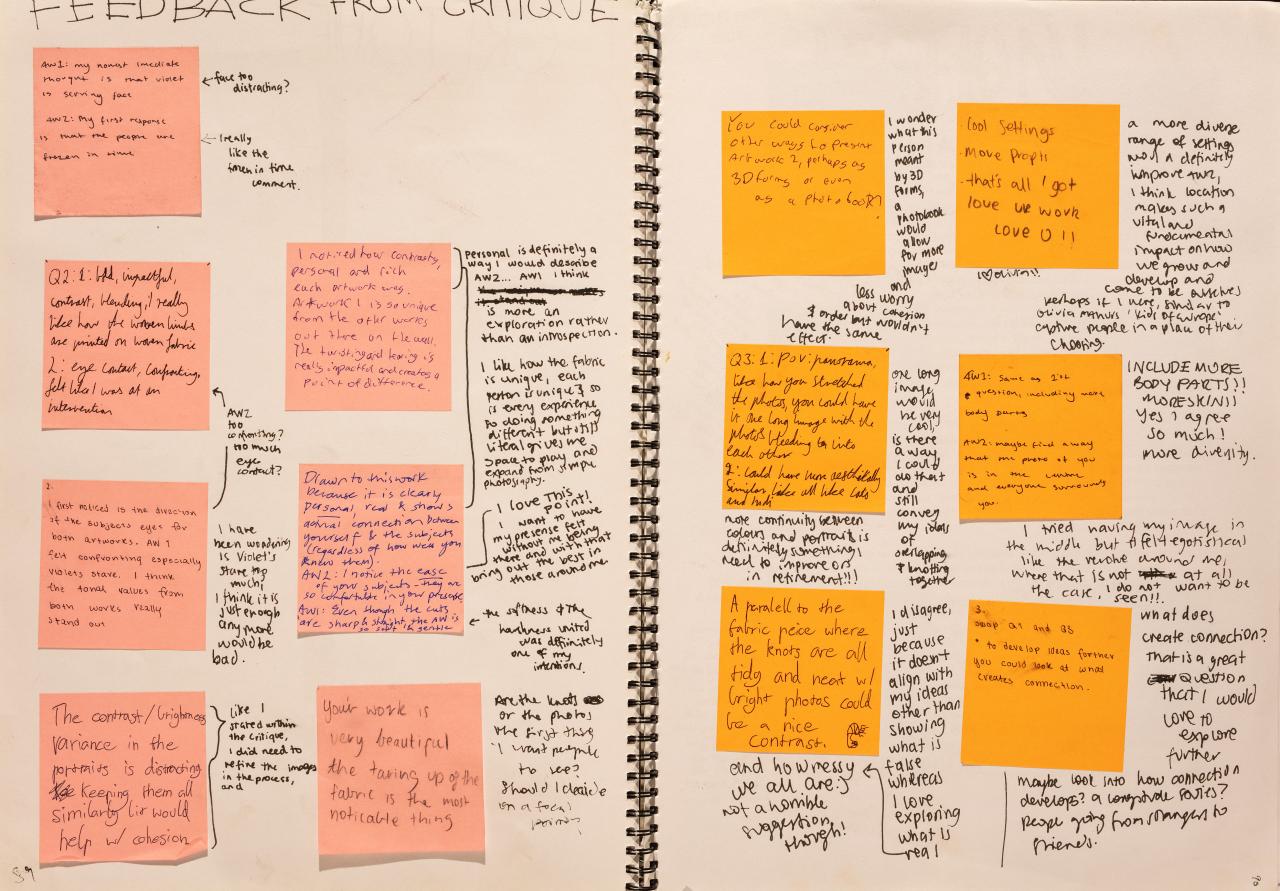 FEEDBACK FROM CRITIQUE
AW1: my honest imediate
thought is that violet
is serving face
AW2: My first response
is that the people are
frozen in time
face too
distracting?
I really
like the
frozen in time
comment.
Q2: 1: bld, impactful,
contrast, blending, I really
like how the woven limbs
are printed on woven fabric
2: eye contact, confronting,
felt like I was at an
intervention
AW2
too
confronting?
too much
eye
contact?
2.
I first noticed is the direction
of the subjects eyes for
both artworks. AW1
felt confronting especially
violets stare. I think
the tonal values from
both works really
stand out
I have
been wondering
is Violet's
stare too
much,
I think it is
just enough
any more
would be
bad.
The contrast/brightness
variance in the
portraits is distracting
keeping them all
similarly lit would
help w/ cohesion
like I
stated within
the critique,
I did need to
refine the images
in the process,
and
I noticed how contrasty,
personal and rich
each artwork was.
Artwork 1 is so unique
from the other works
out there on the wall.
The twisting and
is
really impactful and creates a
point of difference.
Personal is definitely a
way I would describe
AW2... AW1 I think
is more an
exploration rather
than an introspection.
I like how the fabric
is unique, each
person is unique & so
is every experience
so doing something
different but still
literal gives me
space to play and
expand from simple
photography.
Drawn to this work
because it is clearly
personal, real & shows
actual connection between
yourself & the subjects
(regardless of how well you
know them).
AW2: I notice the ease
of your subjects - they are
so comfortable in your presence
AW1: Even though the cuts
are sharp & straight, the AW is
so soft & gentle
I love This
point!
I want to have
my presense felt
without me being
there and with that
bring out the best in
those around me
the softness & the
hardness united
was definitely
one of my
intentions.
Your work is
very beautiful
the taring up of the
fabric is the most
noticable thing
Are the knots
or the photos
the first thing
I want people
to see?
Should I decide
on a focal
point?
89
You could consider
other ways to present
Artwork 2, perhaps as
3D forms or even
as a photobook?
I wonder
what this
person
meant
by 3D
forms,
a
photobook
would
allow
for more
images
and
less worry
about cohesion
& order but wouldn't
have the same
effect.
· Cool Settings
· More Props
· that's all I got
love ur work
LOVE U!!
I ♡ Olivia!!
a more diverse
range of settings
would definitely
improve AW2,
I think location
makes such a
vital and
fundemental
impact on how
we grow and
develop and
come to be ourselves
perhaps if I were, similar to
olivia
'kids of europe'
capture people in a place of their
choosing.
Q3: 1: POV: panorama,
like how you stretched
the photos, you could have
it one long image with the
photos bleeding
into
each other
2: Could have more aesthetically
similar, like all like
and
one long
image,
would
be very
cool,
is there
a way
I could
do that
and
still
convey
my ideas
of
overlapping
& knotting
together
more continuity between
colours and portraits is
definitely something I
need to improve on
in retirement!!!
AW1: same as 1st
question, including more
body parts
AW2: maybe find a way
that the photo of you
is in the centre
and everyone surrounds
you.
INCLUDE MORE
BODY PARTS!!
MORE SKIN!!
Yes I agree
so much!
more diversity.
I tried having my image in
the middle but it felt egotistical
like they revolve around me,
where that is not
at all
the case, I do not want to be
seen!!!
A paralell to the
fabric peice where
the knots are all
tidy and neat w/
bright photos could
be a nice
contrast.
I disagree,
just
because
it doesn't
align with
my ideas
other than
showing
what is
false
whereas
I love
exploring
what is
real
and how messy
we all are :)
not a horrible
suggestion
though!
3.
Q1 and Q3
• to develop ideas further
you could look at what
creates connection.
what does
create connection?
That is a great
question
that I would
love to
explore
further
maybe look into how connection
develops? a longitude series?
people going from strangers to
friends.
90